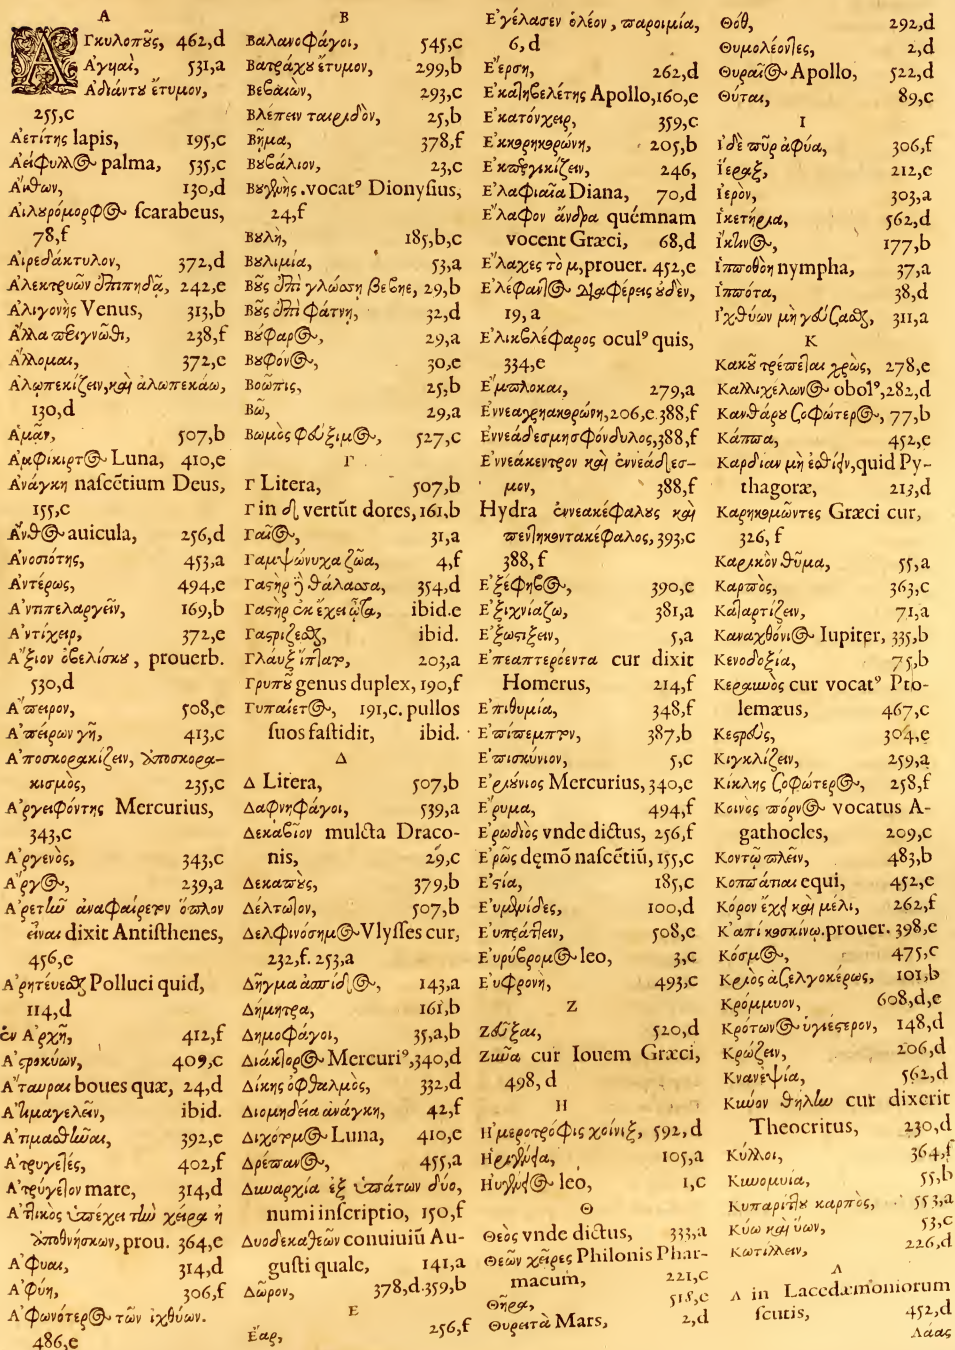 A
ΑΓκυλοπȣ͂ς, 462,d
Α'γηαὶ, 531,a
Α'διάντȣ ἔτυμον,
255,c
Α'ετίτης lapis, 195,c
Α'είφυλλος palma, 535,c
Αἴθων, 130,d
Αἰλȣρόμορφος ſcarabeus,
78,f
Αἱρεδάκτυλον, 372,d
Α'λεκτρυὼν ἐπιπηδᾷ, 242,e
Α'λιγονὴς Venus, 313,b
Α῎λλα 238,f
Α῎λλομαι, 372,e
Α'λωπεκίζειν, καὶ ἀλωπεκάω,
130,d
Α῾μᾶν, 507,b
Α'μφίκιρτος Luna, 410,e
Α'νάγκη naſcẽtium Deus,
155,c
Α῎νθος auicula, 256,d
Α'νοσιότης, 453,a
Α'ντέρως, 494,e
Α'ντιπελαργεῖν, 169,b
Α'ντίχειρ, 372,e
Α῎ξιον ὀβελίσκȣ, prouerb.
530,d
Α῎πειρον, 508,e
Α'πείρων γῆ, 413,c
Α'ποσκορακίζειν, ἀποσκορα-
κισμὸς, 235,c
Α'ργειφόντης Mercurius,
343,c
Α'ργενὸς, 343,c
Α῎ργος, 239,a
Α'ρετὴν ἀναφαίρετον ὅπλον
εἶναι dixit Antiſthenes,
456,e
Α'ρητέυεσθαι Polluci quid,
114,d
ἐν Α'ρχῇ, 412,f
Α'στροκύων, 409,c
Α῎ταυραι boues quæ, 24,d
Α'τιμαγελεῖν, ibid.
392,e
Α'τρυγετὲς, 402,f
Α'τρύγετον mare, 314,d
Α'ττικὸς ὑπέχει τὴν χεῖρα ἢ
ἀποθνήσκων, prou. 364,e
Α'φυαι, 314,d
Α'φύη, 306,f
Α'φωνότερος τῶν ἰχθύων.
486,e
B
Βαλανοφάγοι, 545,c
Βατράχȣ ἔτυμον, 299,b
Βεβαιῶν, 293,c
Βλέπειν ταυρηδὸν, 25,b
Βῆμα, 378,f
Βȣβάλιον, 23,c
Βȣγενὴς .vocat⁹ Dionyſius,
24,f
Βȣλὴ, 185,b,c
Βȣλιμία, 53,a
Βȣ͂ς ἐπὶ γλώσση βέβηε, 29,b
Βȣ͂ς ἐπὶ φάτνη, 32,d
Βȣ́φαρος, 29,a
Βȣφόνος, 30,e
Βοῶπις, 25,b
Βῶ, 29,a
Βωμὸς φεύξιμος, 527,c
Γ
Γ Litera, 507,b
Γ in δ vertũt dores, 161,b
Γαῖος, 31,a
Γαμψώνυχα ζῶα, 4,f
Γαστὴρ ἡ θάλασσα, 354,d
Γαστὴρ ȣ̓κ ἔχει ὦτα, ibid.e
Γαστρίζεσθαι, ibid.
Γλαὺξ ἵπταται, 203,a
Γρυπȣ͂ genus duplex, 190,f
Γυπαίετος, 191,c. pullos
ſuos faſtidit, ibid.
Δ
Δ Litera, 507,b
Δαφνηφάγοι, 539,a
Δεκαβοῖον mulcta Draco-
nis, 29,c
Δεκαπȣς, 379,b
Δέλτωτον, 507,b
Δελφινόσημος Vlyſſes cur,
232,f. 253,a
Δῆγμα ἀσπίδος, 143,a
Δήμητρα, 161,b
Δημοφάγοι, 35,a,b
Διάκτορος Mercuri⁹,340,d
Δίκης ὀφθαλμὸς, 332,d
Διομηδεία ἀνάγκη, 42,f
Διχότομος Luna, 410,e
Δρέπανος, 455,a
Δυναρχία ἐξ ὑπάτων δύο,
numi inſcriptio, 150,f
Δυοδεκαθεῶν conuiuiũ Au-
guſti quale, 141,a
Δῶρον, 378,d.359,b
E
Ἔαρ, 256,f
Ε'γέλασεν ὀλέον, παροιμία,
6,d
Ε῎ερση, 262,d
Ε'κατηβελέτης Apollo,160,e
Ε'κατόνχειρ, 359,c
Ε'κκορηκορώνη, 205,b
246,
Ε'λαφιαῖα Diana, 70,d
Ε῎λαφον ἄνδρα quémnam
vocent Græci, 68,d
Ε῎λαχες τὸ μ, prouer. 452,e
Ε'λέφαντος διαφέρεις ȣ̓δὲν,
19,a
Ε'λικβλέφαρος ocul⁹ quis,
334,e
Ε'μπλοκαι, 279,a
Ε'ννεαγηρακορώνη,206,e.388,f
Ε'ννεάδεσμησφόνδυλος,388,f
Ε'ννεάκεντρον καὶ ἐννεάδεσ-
μον, 388,f
Hydra ἐννεακέφαλȣς καὶ
πεντηκοντακέφαλος, 393,c
388,f
Ε'ξέφηβος, 390,e
Ε'ξιχνίαζω, 381,a
5,a
Ε'πεαπτερόεντα cur dixit
Homerus, 214,f
Ε'πιθυμία, 348,f
Ε'πίπεμπτον, 387,b
Ε'πισκύνιον, 5,c
Ε'ριȣ́νιος Mercurius, 340,e
Ε῎ρυμα, 494,f
Ε'ρωδιὸς vnde dictus, 256,f
Ε῎ρως dęmõ naſcẽtiũ, 155,c
Ε'στία, 185,c
Ε'υμενίδες, 100,d
Ε'υπράττειν, 508,e
Ε'υρύβρομος leo, 3,c
Ε'υφρονὴ, 493,c
Z
Ζεῦξαι, 520,d
Ζωῦα cur Iouem Græci,
498,d
H
Η῾μεροτρόφις χοίνιξ, 592,d
Η'ριγένεια, 105,a
Η'υγενὴς leo, 1,c
Θ
Θεὸς vnde dictus, 333,a
Θεῶν χεῖρες Philonis Phar-
macum, 221,c
Θῆρα, 518,e
Θυρειτὰ Mars, 2,d
Θόθ, 292,d
Θυμολέοντες, 2,d
Θυραῖος Apollo, 522,d
Θύται, 89,c
I
Ἰδὲ πῦρ ἀφύα, 306,f
Ἵεραξ, 212,e
Ἱερὸν, 303,a
Ἱκετήρια, 562,d
Ἴκτινος, 177,b
Ἱπποθόη nympha, 37,a
Ἱππότα, 38,d
Ι'χθύων μὴ γεύσασθαι, 311,a
K
Κακȣ͂ τρέπεται χρὼς, 278,e
Καλλιχελωνος obol⁹,282,d
Κανθάρȣ σοφώτερος, 77,b
Κάππα, 452,e
Καρδίαν μὴ ἐσθίειν, quid Py-
thagoræ, 213,d
Καρηκομῶντες Græci cur,
326,f
Καρικὸν θῦμα, 55,a
Καρπὸς, 363,c
Καταρτίζειν, 71,a
Καταχθόνιος Iupiter, 335,b
Κενοδοξία, 75,b
Κεραυνὸς cur vocat⁹ Pto-
lemæus, 467,c
Κεστρεὺς, 304,e
Κιγκλίζειν, 259,a
Κίκλης σοφώτερος, 258,f
Κοινὸς πόρνος vocatus A-
gathocles, 209,c
Κοντῷ πλεῖν, 483,b
Κοππάτιαι equi, 452,e
Κόρον ἔχει καὶ μέλι, 262,f
Κ'απὶ κοσκίνῳ. prouer. 398,e
Κόσμος, 475,c
Κριὸς ἀσελγοκέρως, 101,b
Κρόμμυον, 608,d,e
Κρότωνος ὑγιέστερον, 148,d
Κρώζειν, 206,d
Κυανεψία, 562,d
Κύνον θηλὴν cur dixerit
Theocritus, 230,d
Κύλλοι, 364,f
Κυνομυία, 55,b
Κυπαρίττȣ καρπὸς, 553,a
Κύω καὶ ὕων, 53,c
Κωτίλλειν, 226,d
Λ
Λ in Lacedæmoniorum
ſcutis, 452,d
Λάας